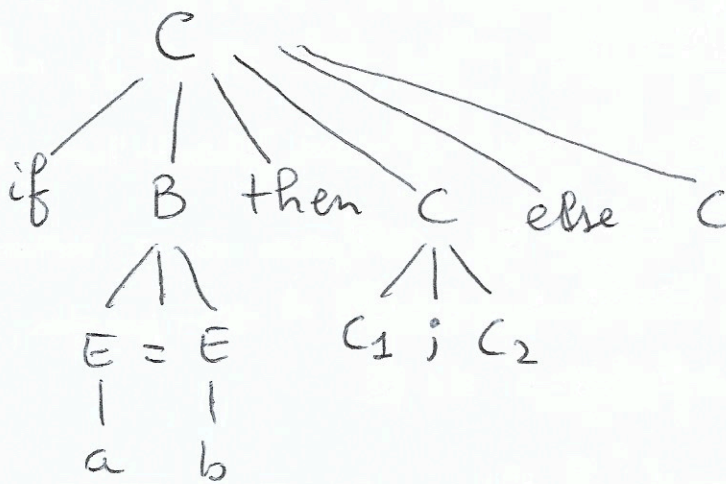 C
if B then C else C
E = E C₁ ; C₂
a b